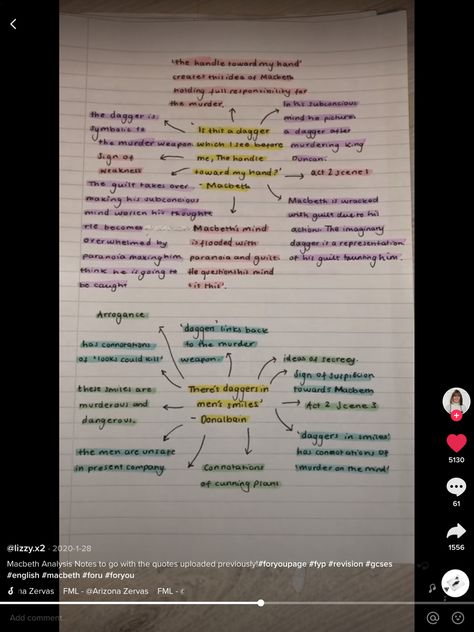 'the handle toward my hand'
creates this idea of Macbeth
holding full responsibility for
the murder.
In his subconcious
mind he pictures
a dagger after
murdering king
Duncan.
the dagger is
symbolic to
the murder weapon.
'Is this a dagger
which I see before
me, The handle
toward my hand?'
- Macbeth
Sign of
weakness
act 2 scene 1
The guilt takes over
making his subconcious
mind worsen his thoughts
He becomes
overwhelmed by
paranoia making him
think he is going to
be caught
Macbeth's mind
is flooded with
paranoia and guilt.
He questions his mind
'is this'.
Macbeth is wracked
with guilt due to his
action. The imaginary
dagger is a representation
of his guilt taunting him.
Arrogance
'daggers' links back
to the murder
weapon.
has connotations
of 'looks could kill'
ideas of secrecy.
Sign of suspicion
towards Macbeth
these smiles are
murderous and
dangerous.
'There's daggers in
men's smiles'
- Donalbain
Act 2 Scene 3
the men are unsafe
in present company.
Connotations
of cunning plans
'daggers in smiles'
has connotations of
'murder on the mind'
5130
61
1556
@lizzy.x2 · 2020-1-28
Macbeth Analysis Notes to go with the quotes uploaded previously!#foryoupage #fyp #revision #gcses
#english #macbeth #foru #foryou
na Zervas FML - @Arizona Zervas FML -
Add comment...